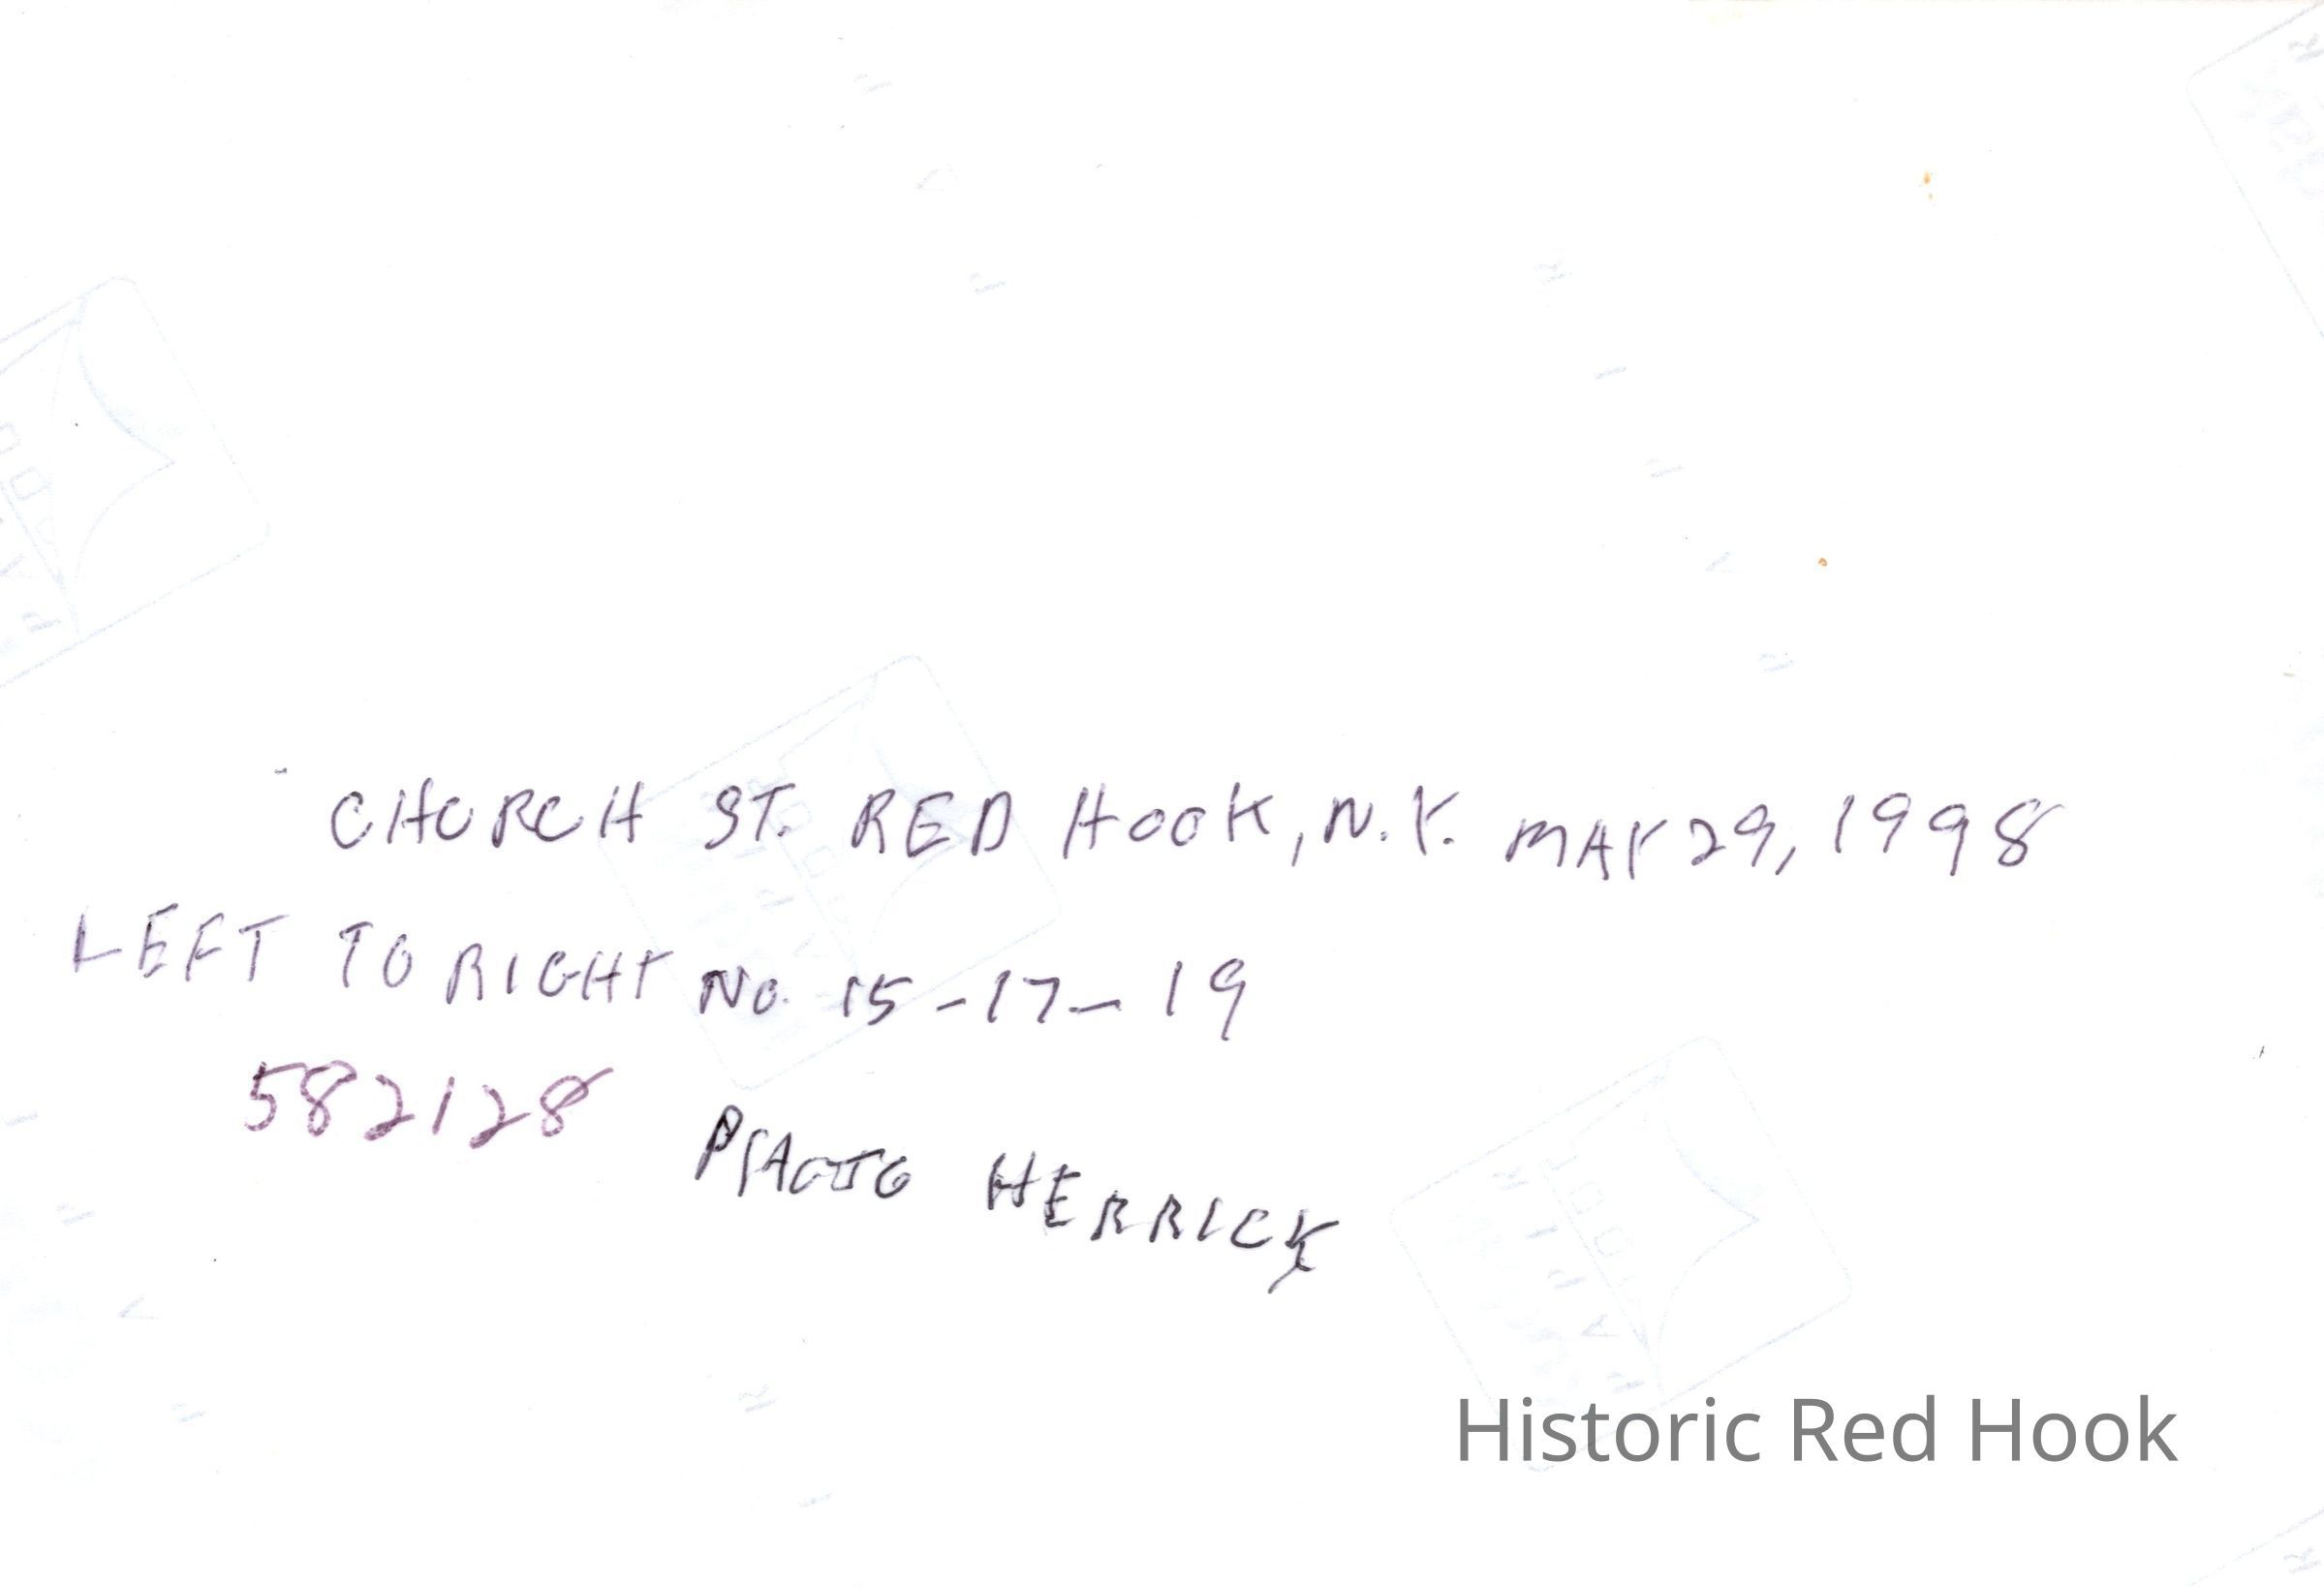 CHURCH ST. RED HOOK, N.Y. MAY 29, 1998
LEFT TO RIGHT No. 15-17-19
582128
HERRICK
Historic Red Hook